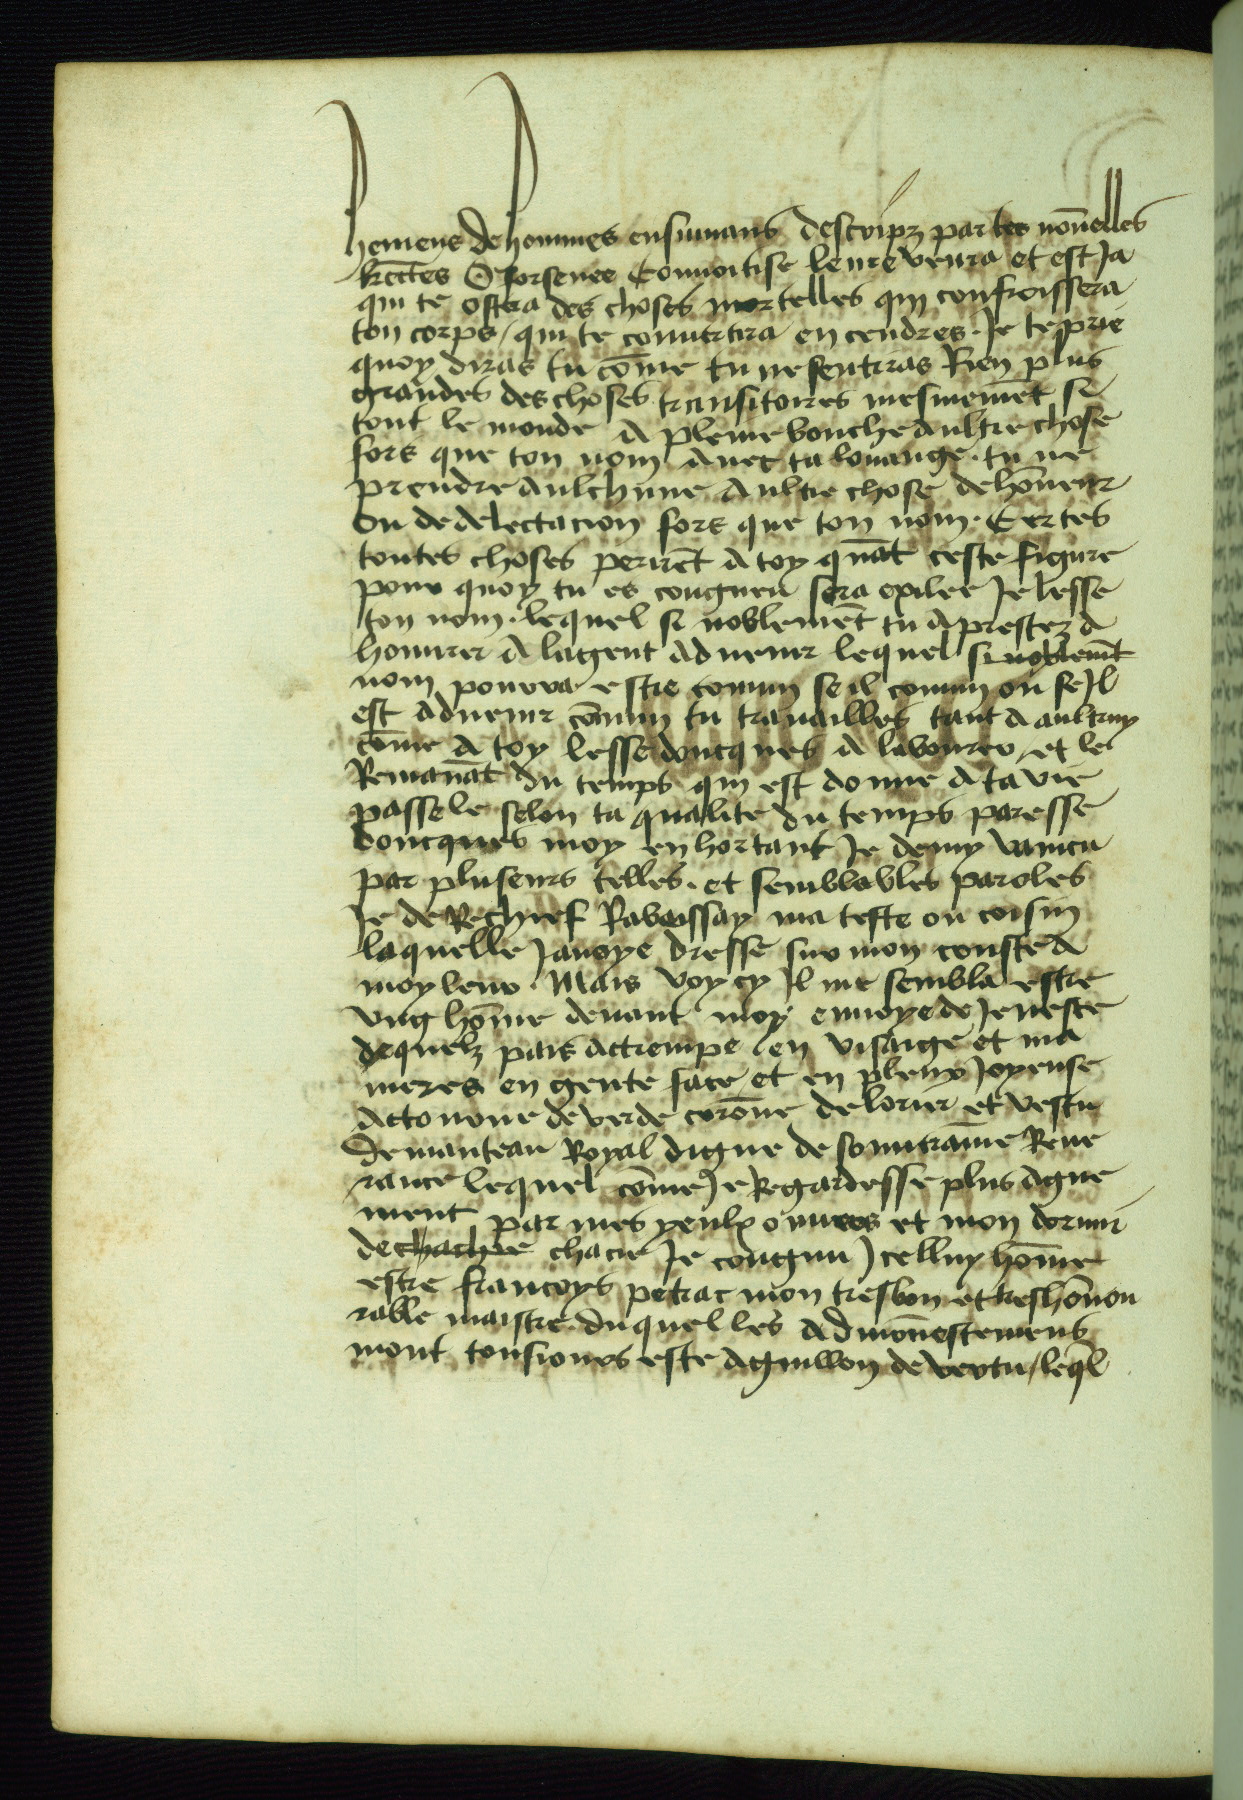 hemens de hommes ensuiuans descripz par tes nouuelles
lectres O forsenee Conuoitise leure venra et est Ja
qui te ostera des choses mortelles qui confroissera
ton corps / qui te conuertira en cendres. Je te prie
quoy diras tu cōme tu ne sentiras Rien plus
grandes des choses transitoires mesmemēt se
tout le monde A pleine bouche Aultre chose
fors que ton nom Auec ta louange. tu ne
prendre Aulchune Aultre chose de hōneur
Ou de delectacion fors que ton nom. Certes
toutes choses perirēt A toy quāt ceste figure
pour quoy tu es congneu sera exilee Je lesse
ton nom. lequel si noblemēt tu Aprestez A
honnrer A lagent Aduenir lequel si noblemēt
nom pourra estre comun se il comun ou se Jl
est Aduenir cōmun tu trauailles tant A aultruy
cōme A toy lesse doucques A labourer et le
Remanāt du temps qui est donne A ta vie
passe le selon ta qualite du temps paresse
doucques moy enhortant Je demy vaincu
par pluseurs telles. et semblables paroles
Je de Rechief Rabaissay ma teste ou coisin
laquelle Jauoye dresse sur mon couste A
moy leue. Mais voy cy Jl me sembla estre
vng hōme deuant moy enuoye de Je ne scē
de quelz pais Actrempe en visaige et ma
nieres en gente face et en pleur Joyeuse
Actourne de verde corōne de lorier et vestu
De manteau Royal digne de souueraine Reue
rance lequel cōme Je Regardesse plus Ague
ment par mes yeulx ouuers et mon dormir
de chachie chacie Je congnu Jcelluy hōme
estre francoys petrac mon tresbon et treshōnou
rable maistre. duquel les Admōnestemens
mont tousiours este Aguillon de vertu / leq̄l